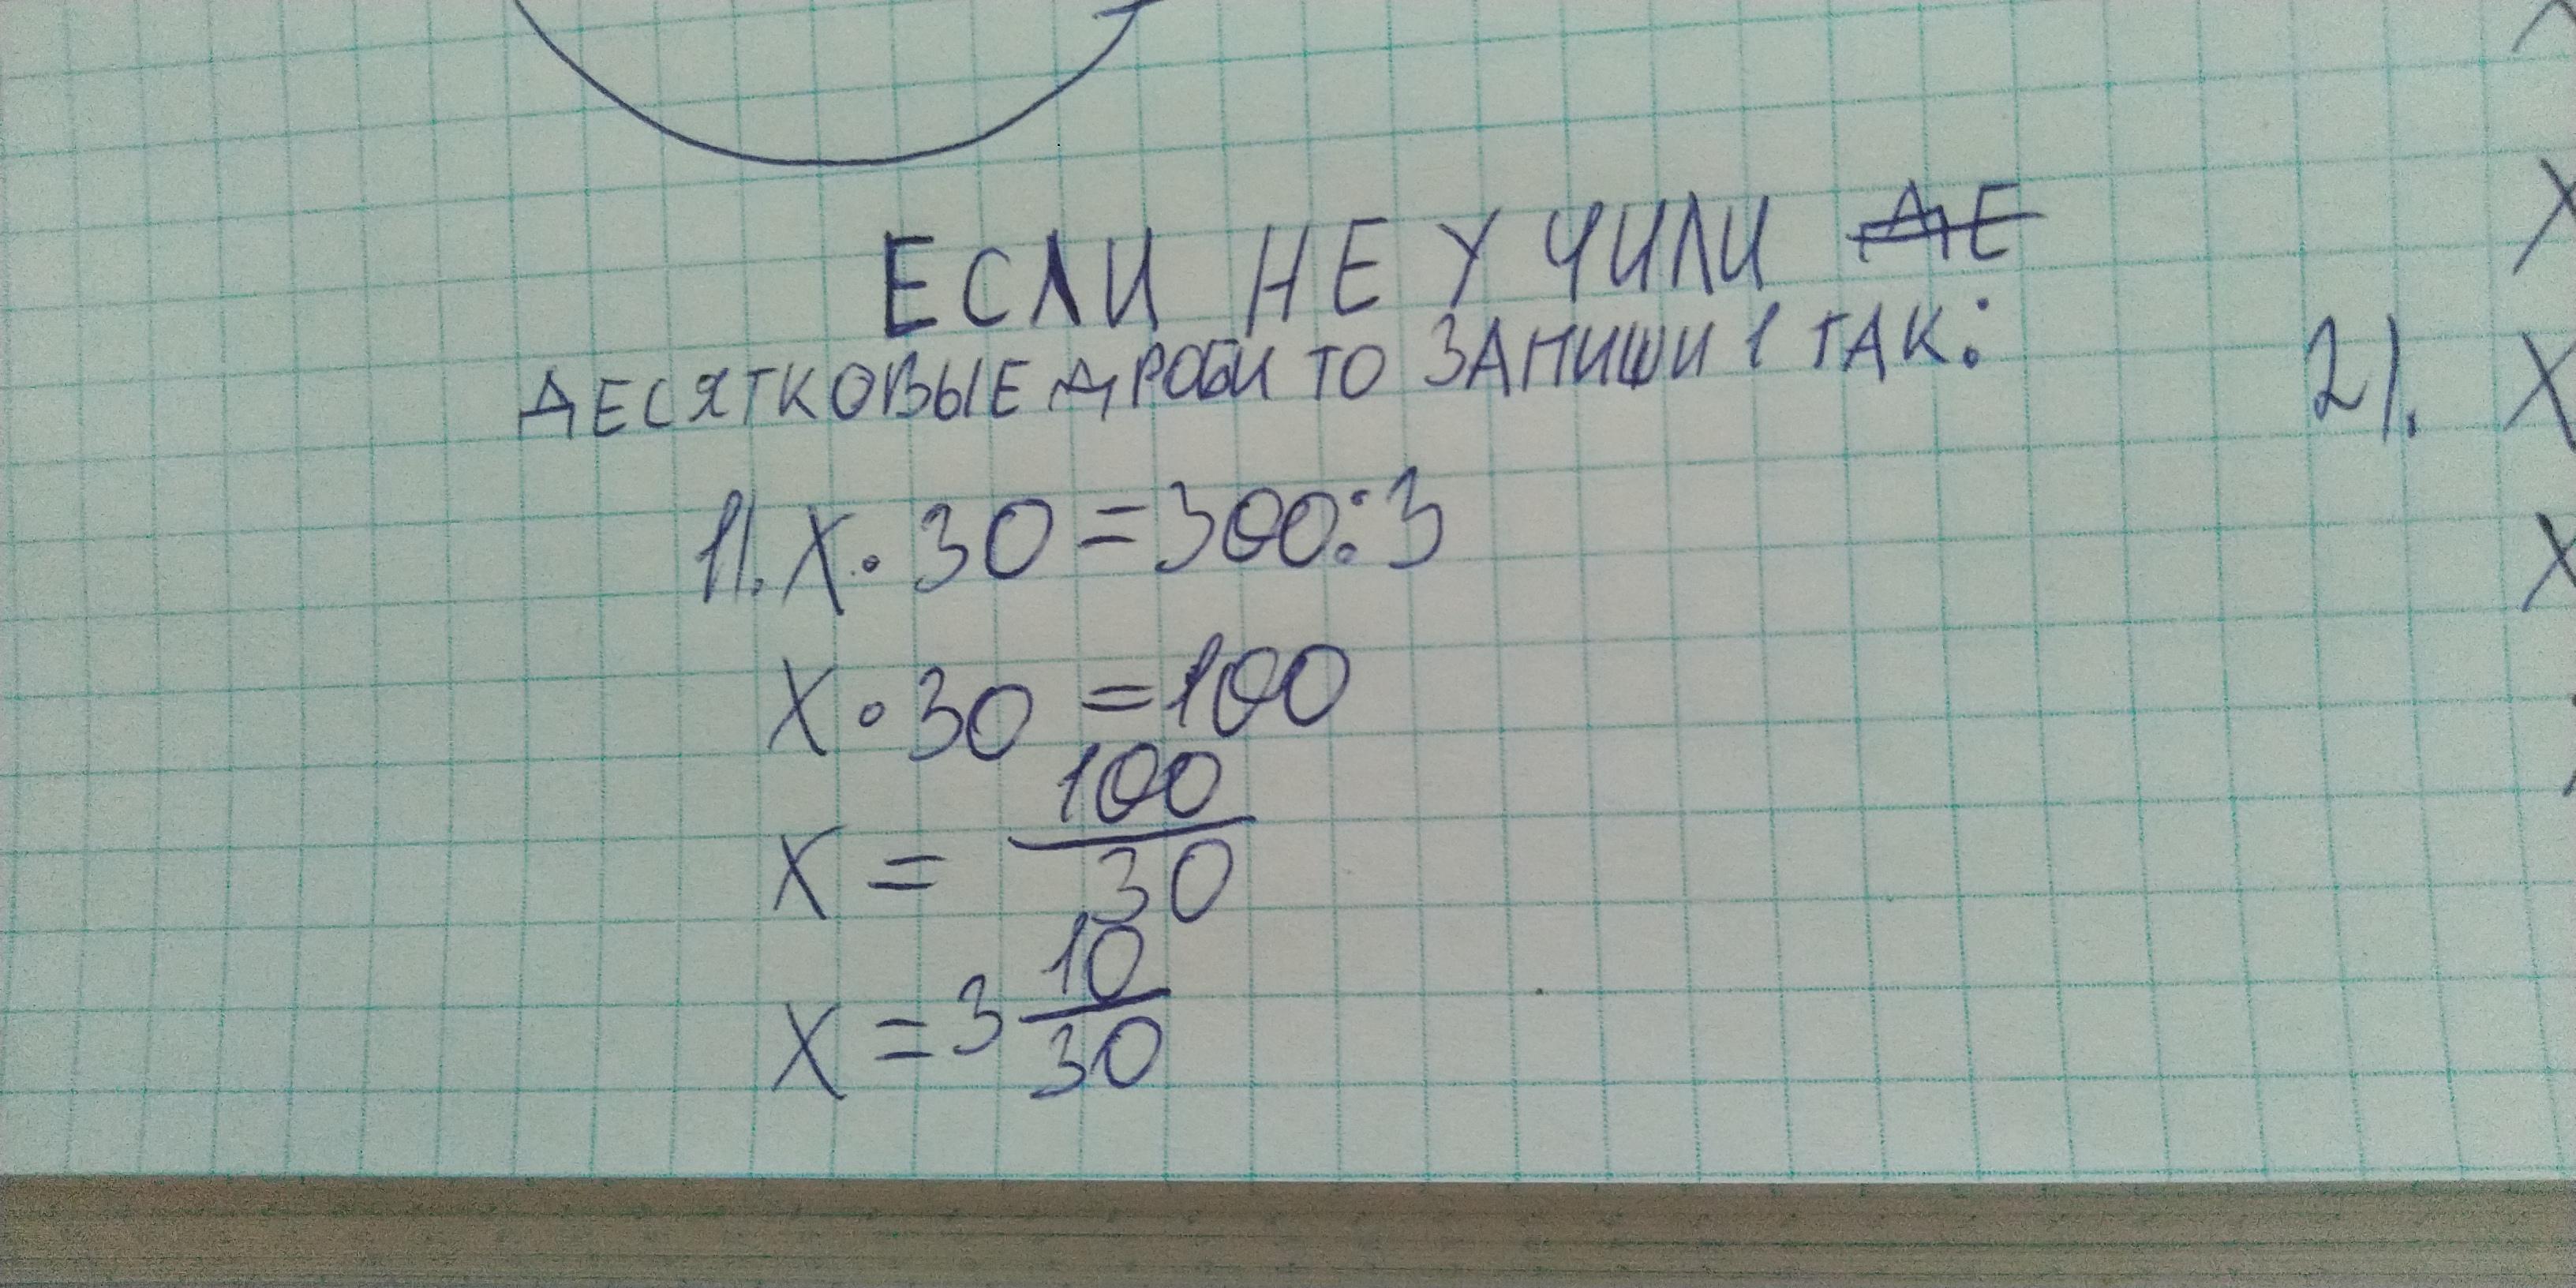 ЕСЛИ НЕ УЧИЛИ ДЕ
ДЕСЯТКОВЫЕ ДРОБИ ТО ЗАПИШИ 1 ТАК:
1). X · 30 = 300 : 3
X · 30 = 100
X = 100/30
X = 3 10/30
2). X
X
X